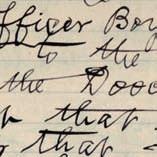 Officer Boy
to the
the Dooo
that
that